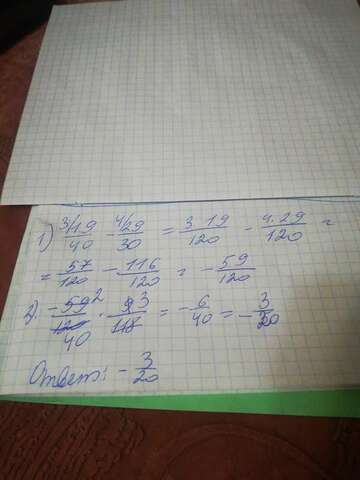 1) 3/19/40 - 4/29/30 = 3·19/120 - 4·29/120 =
= 57/120 - 116/120 = - 59/120
2) -59²/120 40 · 9 3/118 = - 6/40 = - 3/20
Ответ: - 3/20